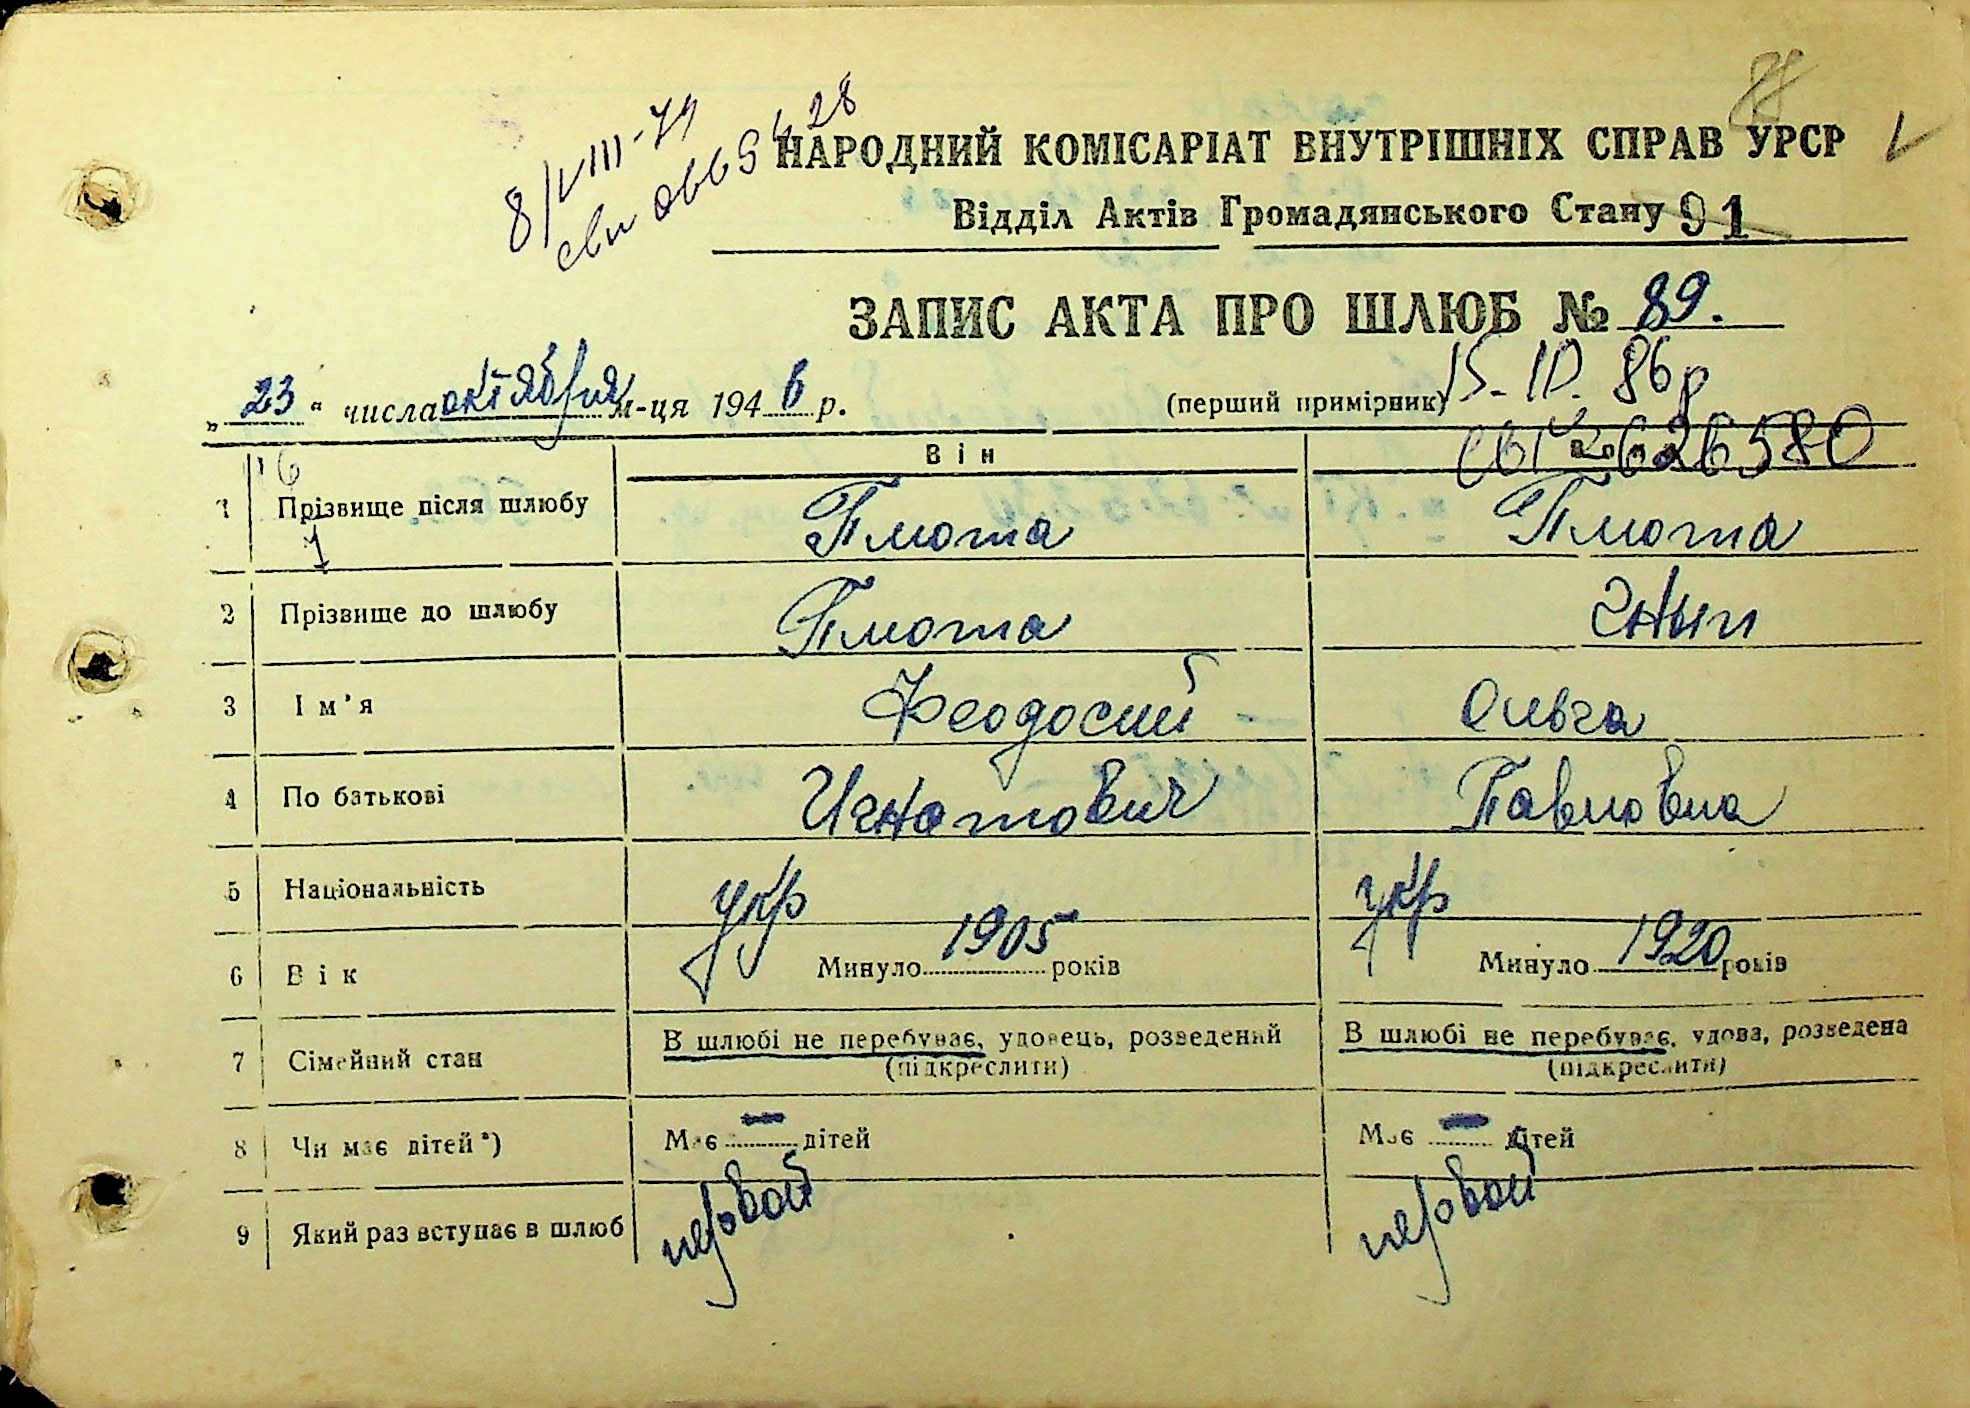 88
8/VIII-79
НАРОДНИЙ КОМІСАРІАТ ВНУТРІШНІХ СПРАВ УРСР
Відділ Актів Громадянського Стану 91
ЗАПИС АКТА ПРО ШЛЮБ № 89.
„23“ числа октября м-ця 1946 р. (перший примірник) 15. IV. 86 р
Він
1 Прізвище після шлюбу Тмота Тмота
2 Прізвище до шлюбу Тмота Гнып
3 Ім'я Феодосий Ольга
4 По батькові Игнатович Павловна
5 Національність укр укр
6 Вік Минуло 1905 років Минуло 1920 років
7 Сімейний стан В шлюбі не перебуває, удовець, розведений В шлюбі не перебуває, удова, розведена
(підкреслити) (підкреслити)
8 Чи має дітей*) Має — дітей Має — дітей
9 Який раз вступає в шлюб первой первой